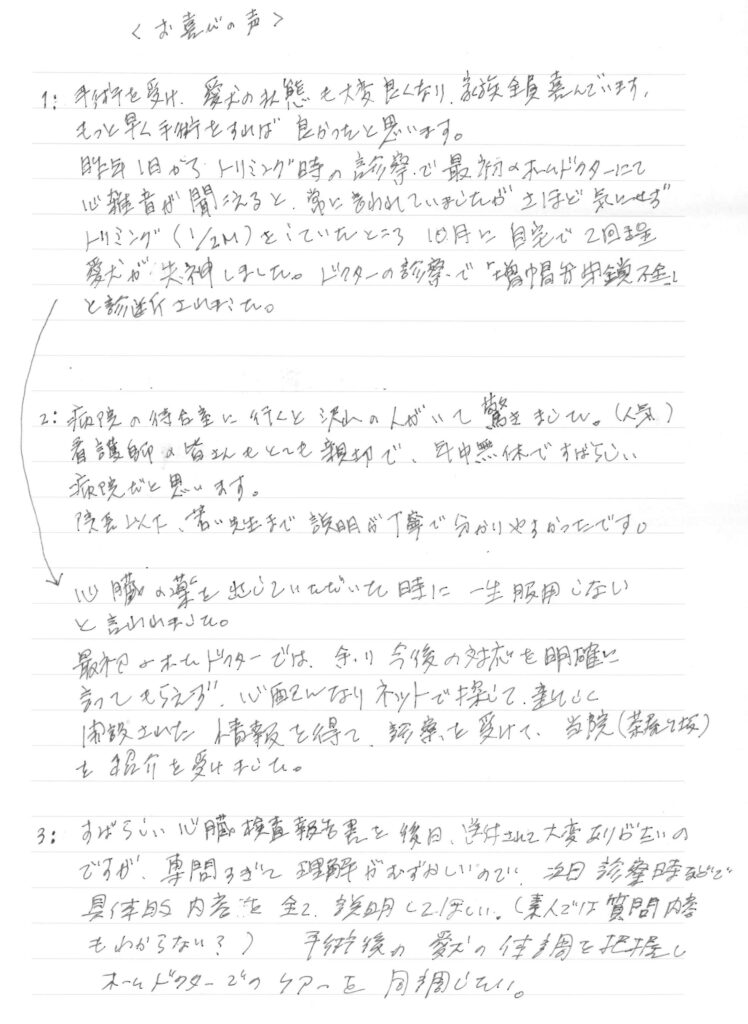 ＜お喜びの声＞
1: 手術を受け、愛犬の状態も大変良くなり、家族全員喜んでいます。
もっと早く手術をすれば良かったと思います。
昨年1日から トリミング時の診察で最初のホームドクターにて
心雑音が聞こえると、常に言われていましたがさほど気にせず
トリミング（1/2M）をしていたところ 10月に自宅で2回程
愛犬が失神しました。ドクターの診察で「増帽弁閉鎖不全」
と診断されました。
2: 病院の待合室に行くと沢山の人がいて驚きました。（人気）
看護師の皆さんもとても親切で、年中無休ですばらしい
病院だと思います。
院長以下、若い先生まで説明が丁寧で分かりやすかったです。
心臓の薬を出していただいた時に一生服用しない
と言われました。
最初のホームドクターでは、余り今後の対応を明確に
言ってもらえず、心配になりネットで探して、新しく
開設された情報を得て、診察を受けて、当院（茶屋ヶ坂）
を紹介を受けました。
3: すばらしい心臓検査報告書を後日、送付されて大変ありがたいの
ですが、専問すぎて理解がむずかしいので、次回診察時などで
具体的内容を全て説明してほしい。（素人では質問内容
もわからない？） 手術後の愛犬の体調を把握し
ホームドクターでのケアーを同調したい。